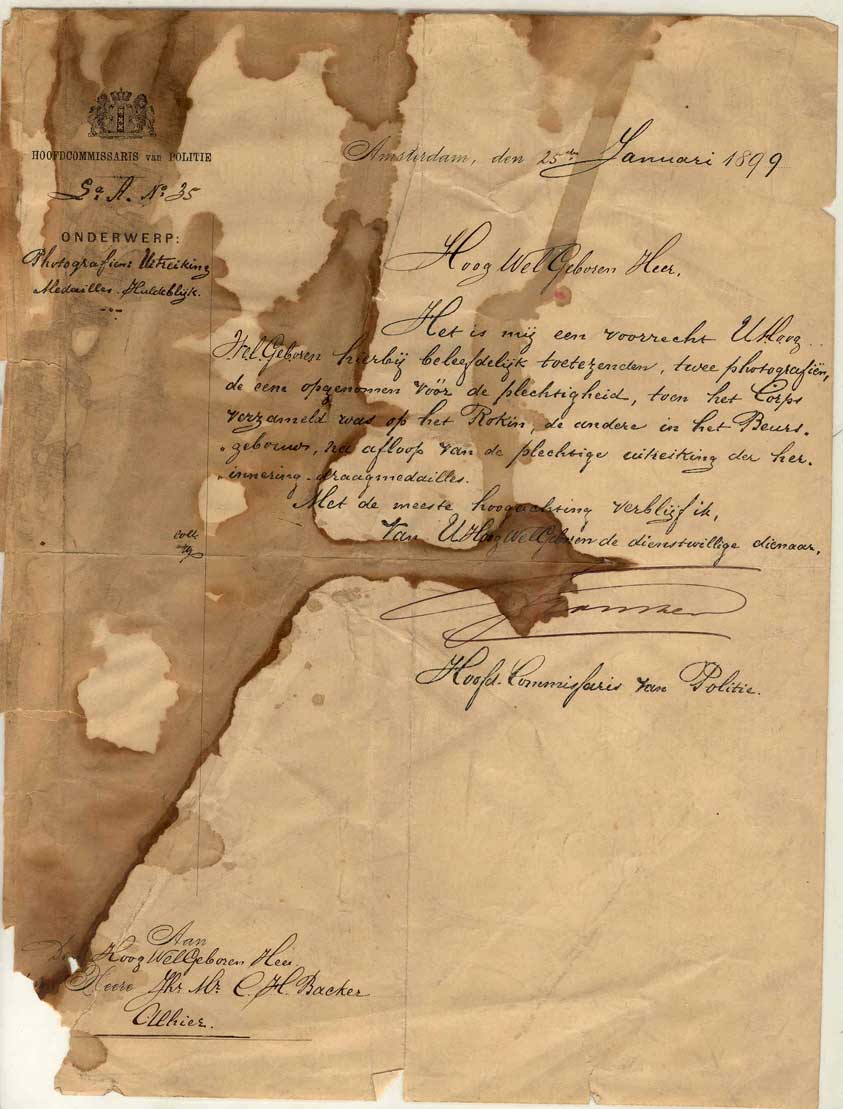 HOOFDCOMMISSARIS van POLITIE
La A. No 35
ONDERWERP:
Photografien: Uitreiking
Medailles. Huldeblijk.
Amsterdam, den 25sten Januari 1899
HoogWelGeboren Heer,
Het is mij een voorrecht UHoog
WelGeboren hierbij beleefdelijk toetezenden, twee photografiën,
de een opgenomen vóór de plechtigheid, toen het Corps
verzameld was op het Rokin, de andere in het Beurs-
„gebouw, na afloop van de plechtige uitreiking der her-
„innering-draagmedailles.
Met de meeste hoogachting verblijf ik,
Van UHoogWelGeboren de dienstwillige dienaar,
Hoofd-Commissaris van Politie.
Aan
HoogWelGeboren Heer
Heere Jhr. Mr. C. H. Backer
Alhier.